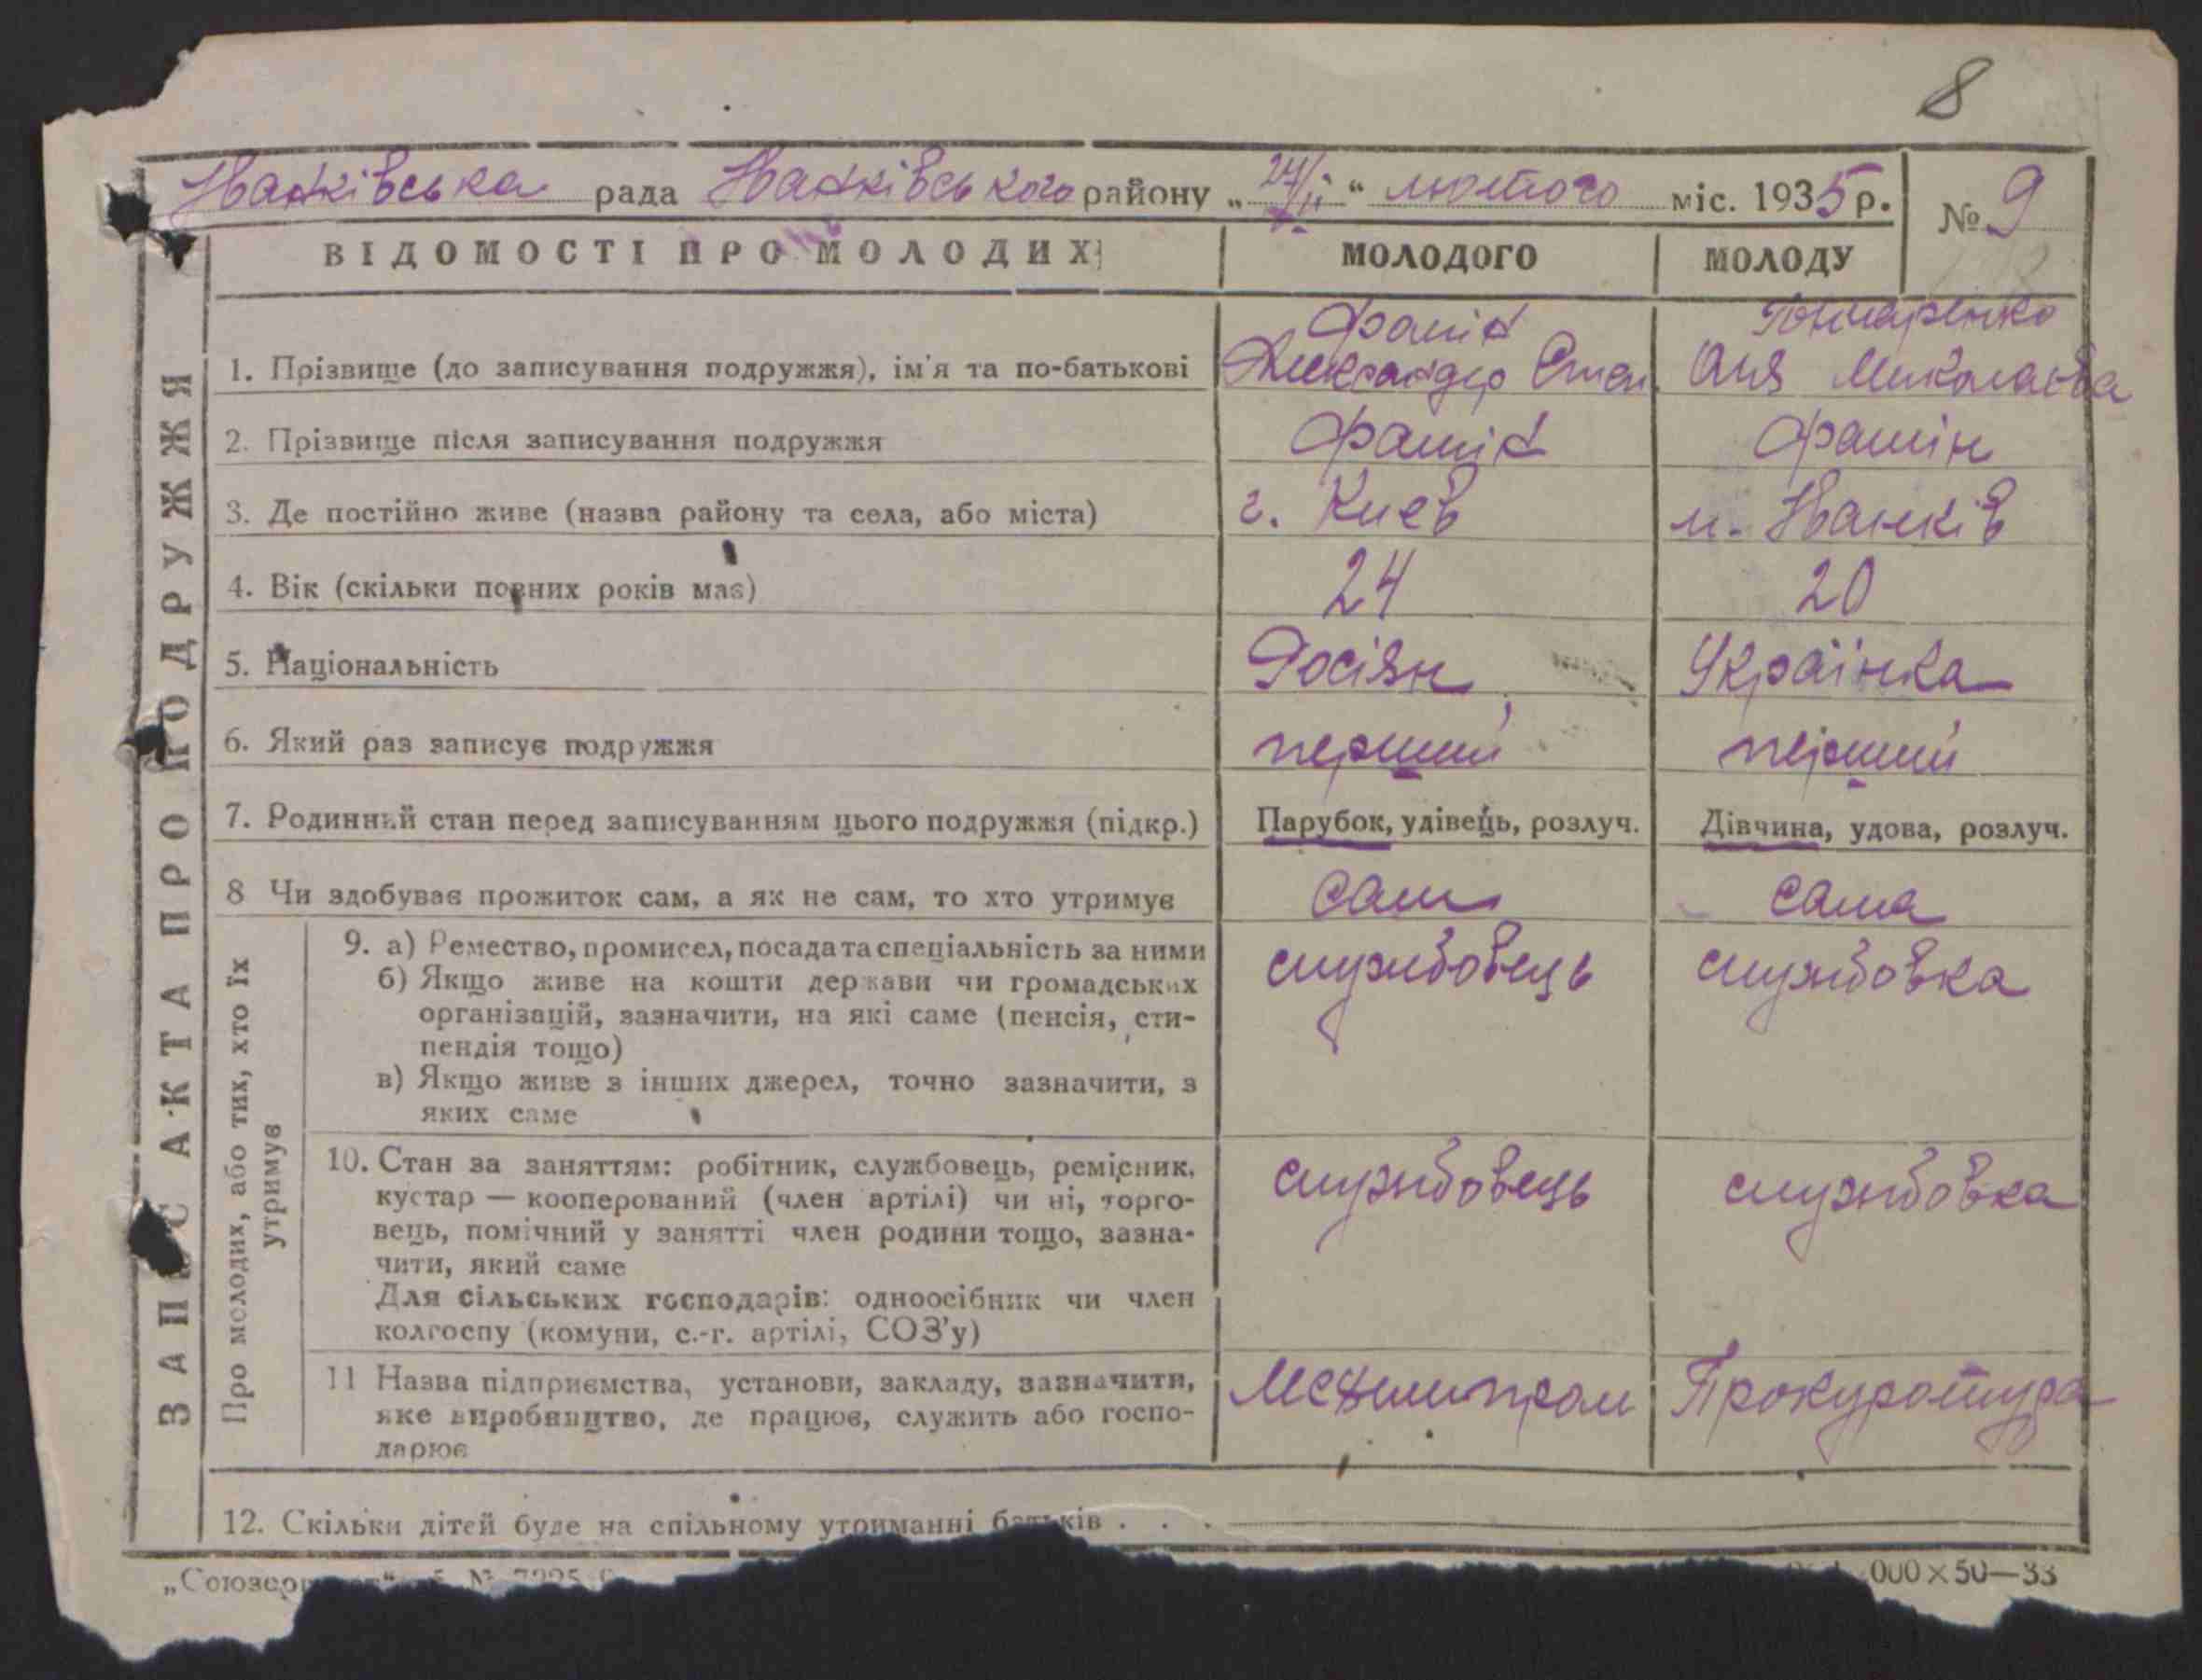 8
Іванківська рада Іванківського району „24/II“ лютого міс. 1935 р. № 9
ВІДОМОСТІ ПРО МОЛОДИХ МОЛОДОГО МОЛОДУ
ЗАПИС АКТА ПРО ПОДРУЖЖЯ
1. Прізвище (до записування подружжя), ім'я та по-батькові Фашін Александр Степ. Гончаренко Аня Миколаєва
2. Прізвище після записування подружжя Фашін Фашін
3. Де постійно живе (назва району та села, або міста) г. Киев м. Іванків
4. Вік (скільки повних років має) 24 20
5. Національність Росіян Українка
6. Який раз записує подружжя перший перший
7. Родинний стан перед записуванням цього подружжя (підкр.) Парубок, удівець, розлуч. Дівчина, удова, розлуч.
8 Чи здобуває прожиток сам, а як не сам, то хто утримує сам сама
Про молодих, або тих, хто їх утримує
9. а) Ремество, промисел, посада та спеціальність за ними службовець службовка
б) Якщо живе на кошти держави чи громадських
організацій, зазначити, на які саме (пенсія, сти-
пендія тощо)
в) Якщо живе з інших джерел, точно зазначити, з
яких саме
10. Стан за заняттям: робітник, службовець, ремісник, службовець службовка
кустар — кооперований (член артілі) чи ні, торго-
вець, помічний у занятті член родини тощо, зазна-
чити, який саме
Для сільських господарів: одноосібник чи член
колгоспу (комуни, с.-г. артілі, СОЗ'у)
11 Назва підприємства, установи, закладу, зазначити, Прокуратура
яке виробництво, де працює, служить або госпо-
дарює
12. Скільки дітей буде на спільному утриманні батьків . . .
000×50—33